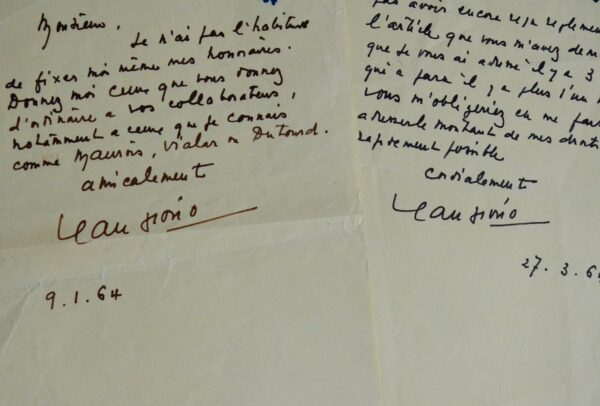 Monsieur,
Je n'ai pas l'habitude
de fixer moi même mes honoraires.
Donnez moi ceux que vous donnez
d'ordinaire a vos collaborateurs,
notamment a ceux que je connais
comme Maurois, Vialar ou Dutourd.
amicalement
Jean Giono
9.1.64
pas avoir encore reçu règlement
l'article que vous m'avez
que je vous ai adressé il y a 3
qui a paru il y a plus d'un
vous m'obligeriez en me
le montant de mes droits
rapidement possible
Cordialement
Jean Giono
27.3.64